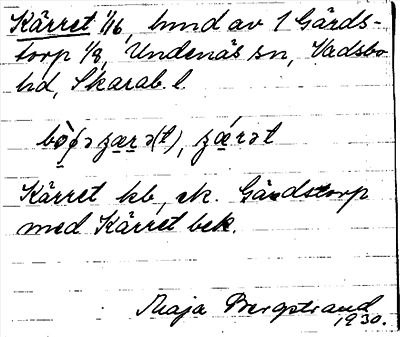 Kärret 1/16, hmd av 1 Gårds-
torp 1/8, Undenäs sn, Vadsbo
hd, Skarab. l.
zærə(t), zǽrət
Kärret kb, ek. Gårdstorp
med Kärret bek.
Maja Bergstrand
1930.